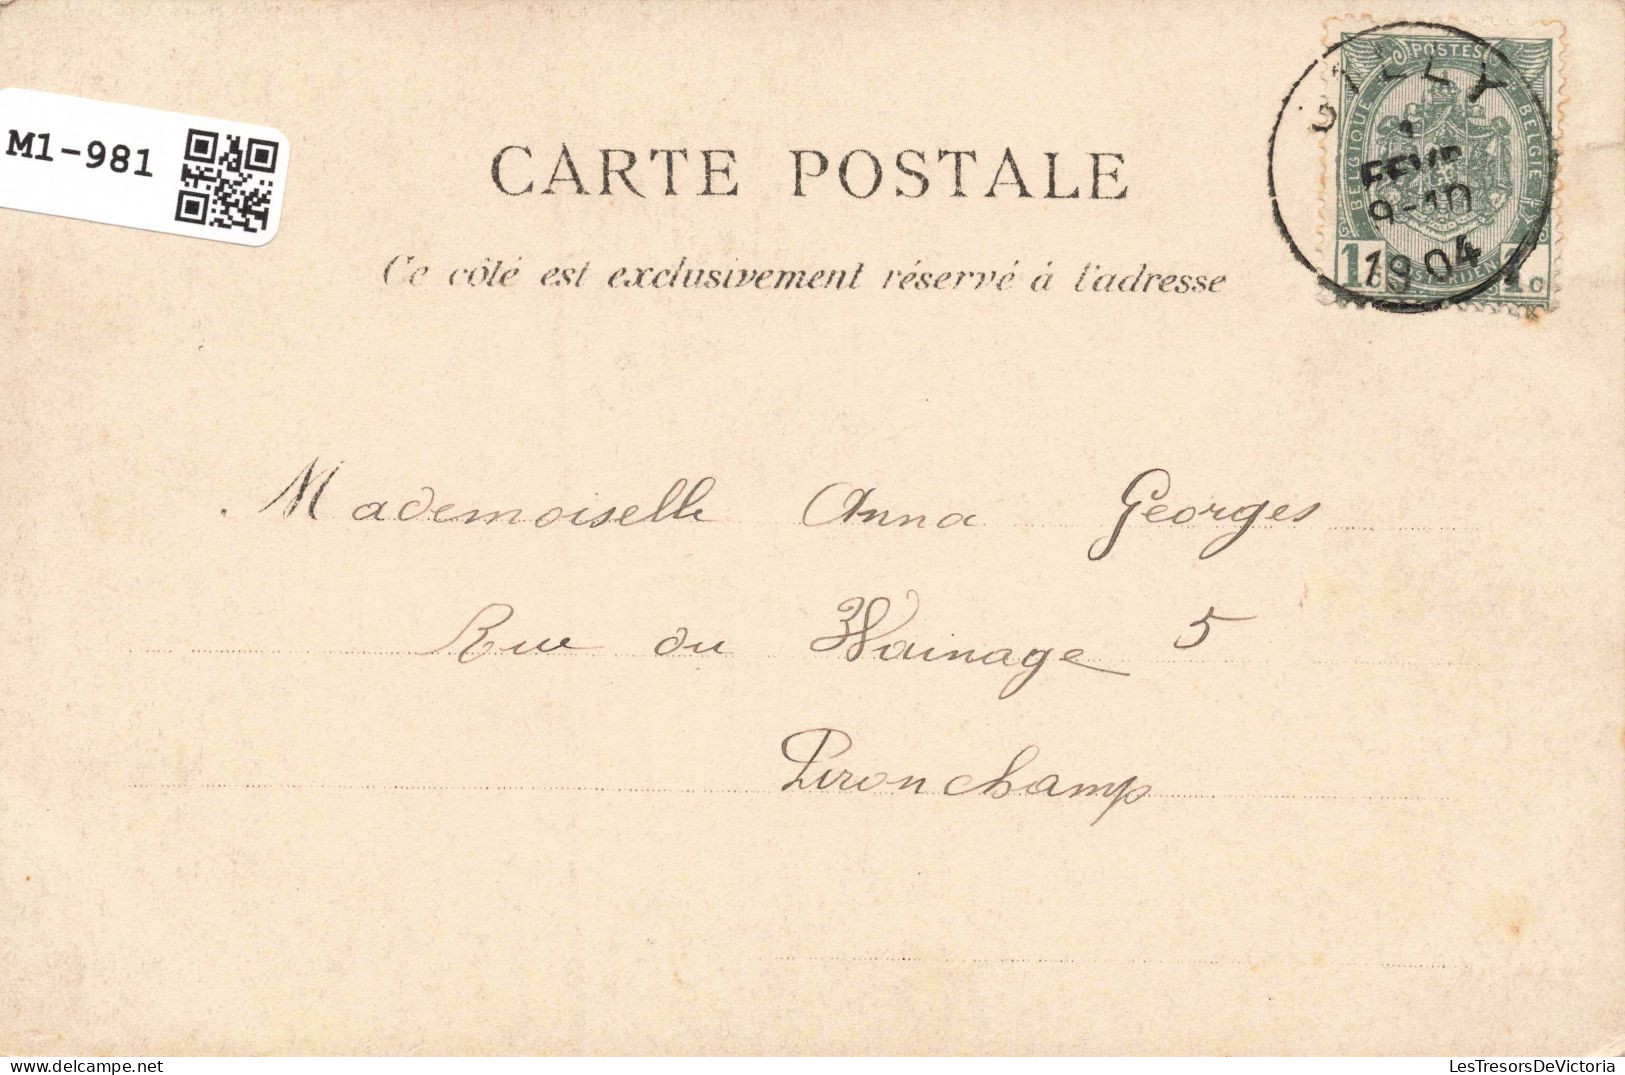 M1-981
CARTE POSTALE
Ce côté est exclusivement réservé à l'adresse
POSTES
BELGIQUE BELGIE
GILLY
1
FEVR
9-10
1904
Mademoiselle Anna Georges
Rue du Wainage 5
Pironchamp
LesTresorsDeVictoria